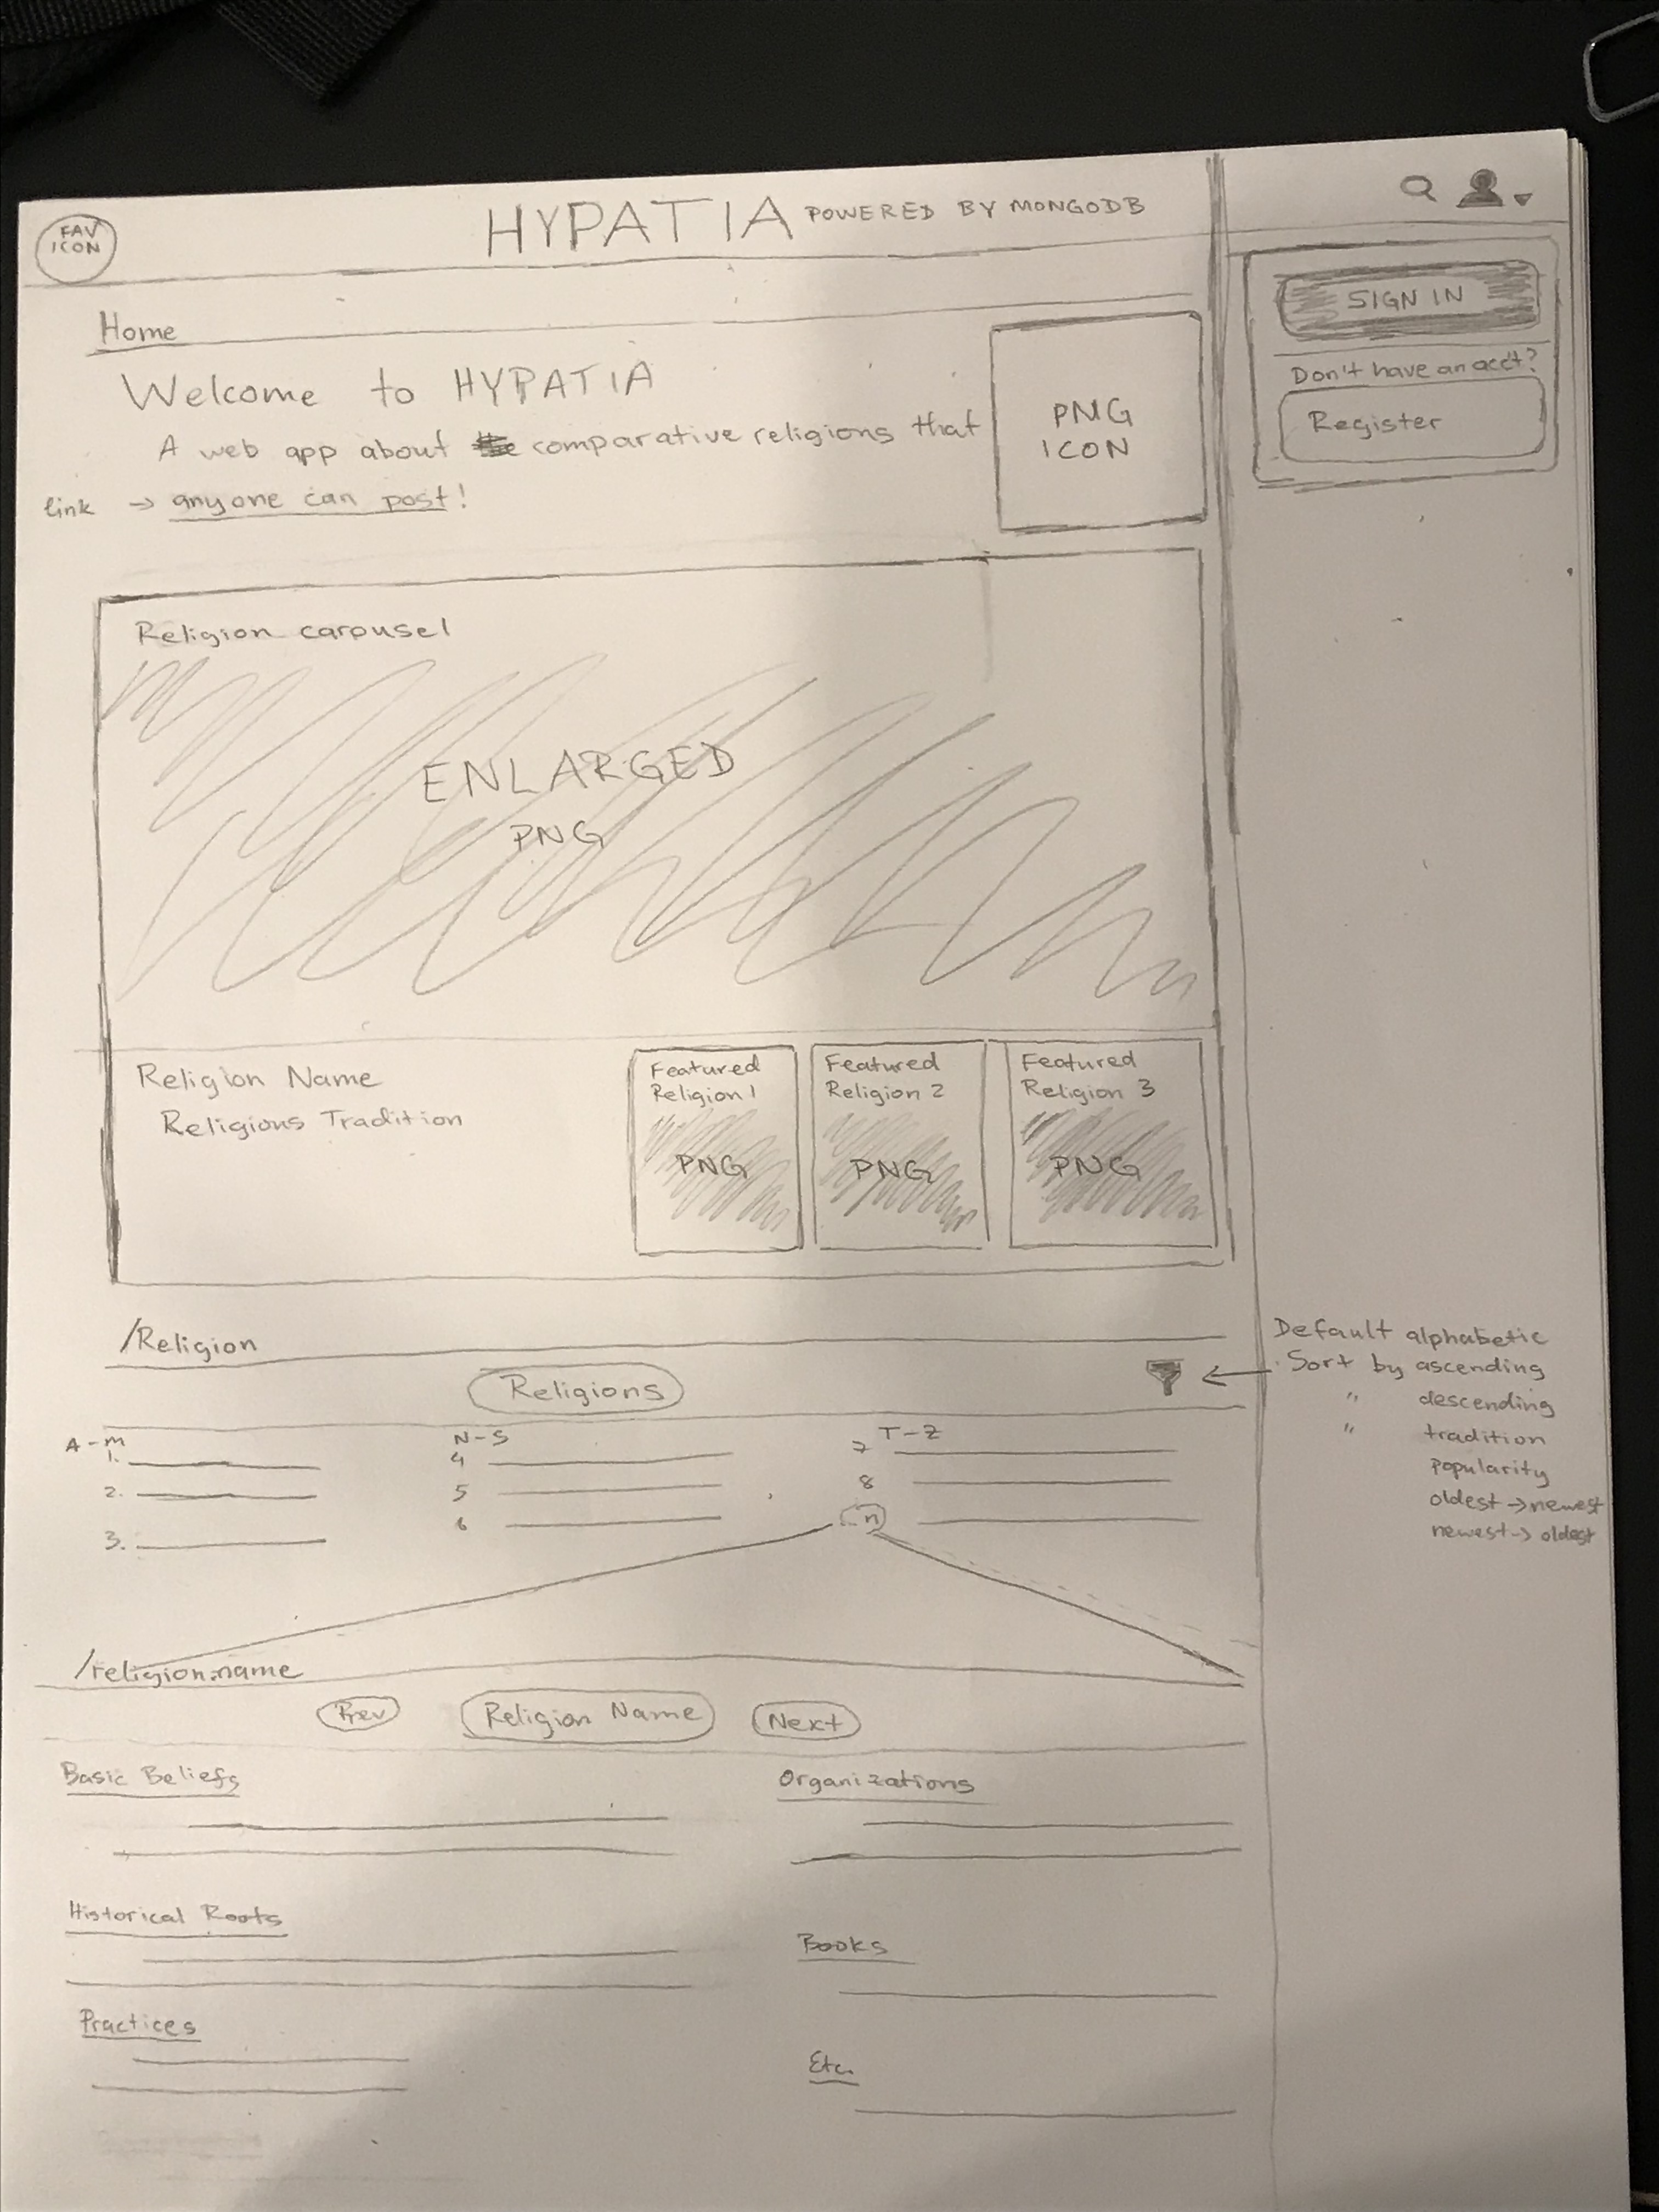 FAV
ICON
HYPATIA POWERED BY MONGODB
SIGN IN
Don't have an acct?
Register
Home
Welcome to HYPATIA
A web app about comparative religions that
link → anyone can post!
PNG
ICON
Religion carousel
ENLARGED
PNG
Religion Name
Religions Tradition
Featured
Religion 1
PNG
Featured
Religion 2
PNG
Featured
Religion 3
PNG
/Religion
Religions
Default alphabetic
Sort by ascending
" descending
" tradition
popularity
oldest → newest
newest → oldest
A-M
1.
2.
3.
N-S
4
5
6
T-Z
7
8
...n
/religion.name
Prev
Religion Name
Next
Basic Beliefs
Historical Roots
Practices
Organizations
Books
Etc.